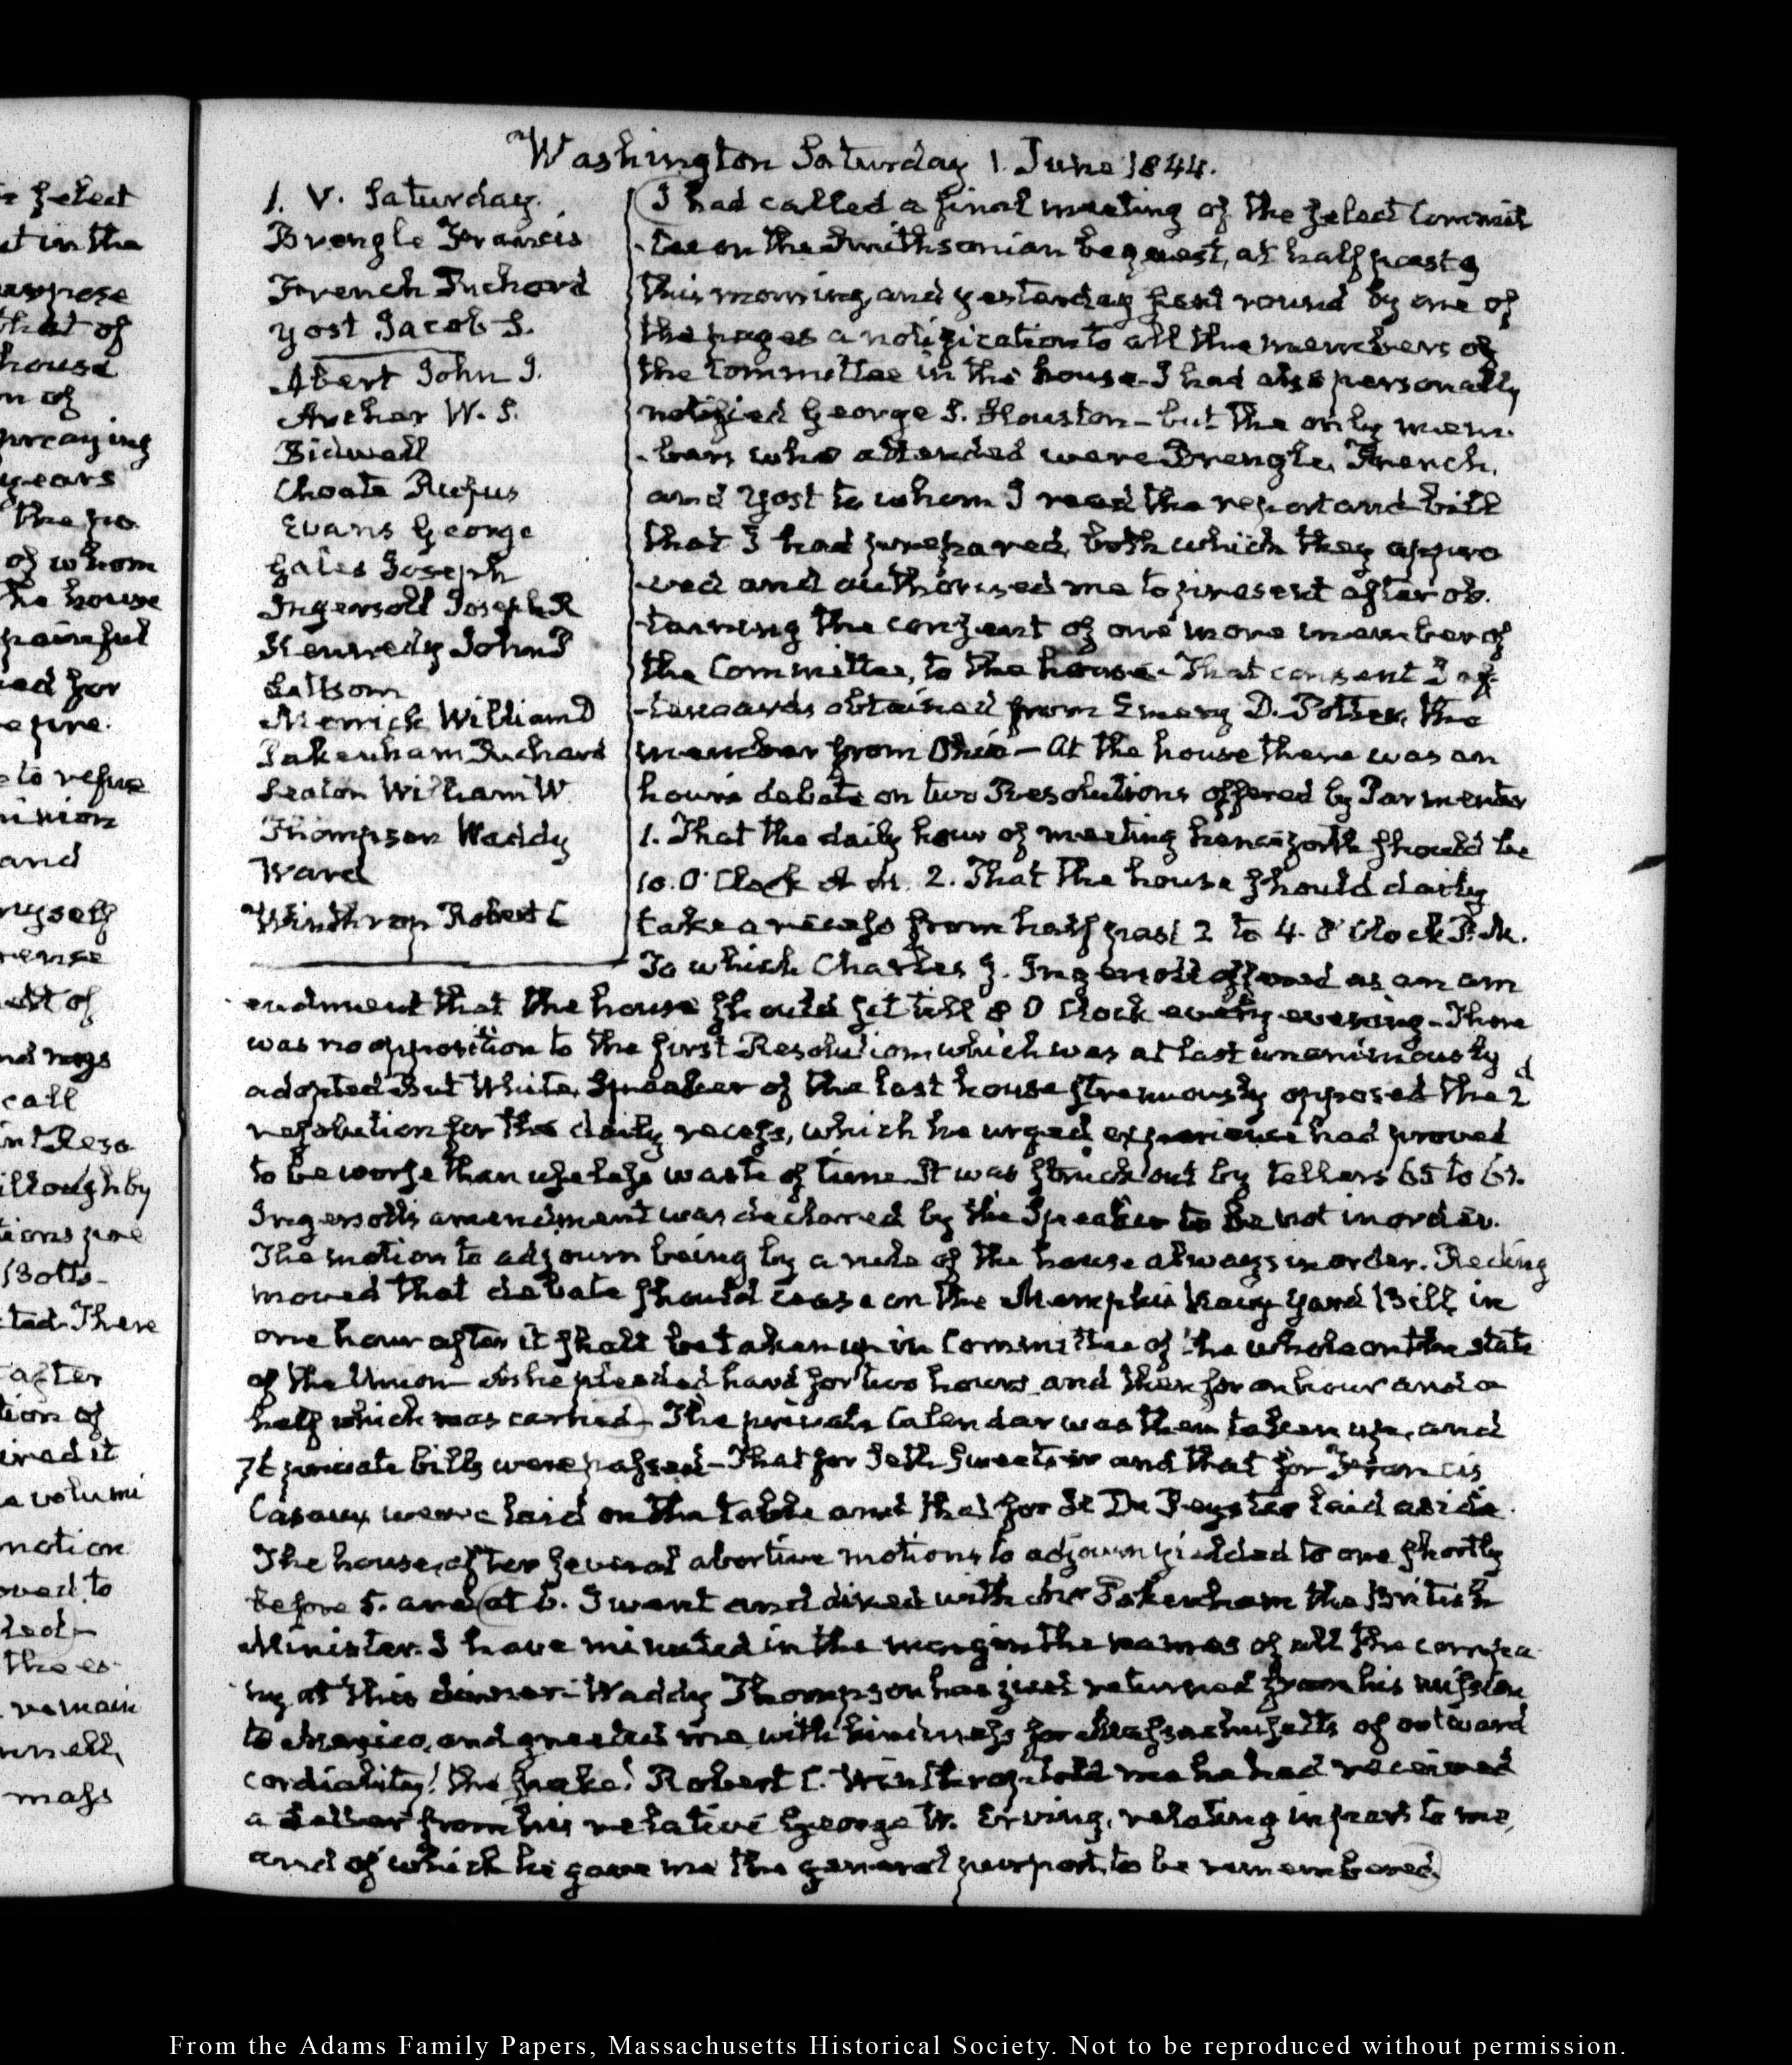 e Select
ut in the
that of
house
n of
praying
years
of whom
he house
painful
ed for
e to refuse
inion
and
myself
est of
call
int Reso
illoughby
tions pre
Botts-
ted. There
after
tion of
a volumi
motion
oved to
remain
mass
Washington Saturday 1. June 1844.
1. V. Saturday.
Brengle Francis
French Richard
Yost Jacob S.
Abert John J.
Archer W. S.
Bidwell
Choate Rufus
Evans George
Gales Joseph
Ingersoll Joseph R
Kennedy John P
Saltsom
Merrick William D
Pakenham Richard
Seaton William W.
Thompson Waddy
Ward
Winthrop Robert C
I had called a final meeting of the Select Commit
-tee on the Smithsonian bequest, at half past 9
this morning, and yesterday sent round by one of
the pages a notification to all the members of
the Committee in the house. I had also personally
notified George S. Houston – but the only mem-
-bers who attended were Brengle, French,
and Yost to whom I read the report and bill
that I had prepared, both which they appro
-ved and authorised me to present after ob-
-taining the consent of one more member of
the Committee, to the house - That consent I af-
-terwards obtained from Emery D. Potter, the
member from Ohio — At the house there was an
hour's debate on two Resolutions offered by Parmenter
1. That the daily hour of meeting henceforth should be
10. O'Clock A. M. 2. That the house should daily
take a recess from half past 2 to 4. O'Clock P. M.
To which Charles J. Ingersoll offered as an am
endment that the house should sit till 8 O Clock every evening - There
was no opposition to the first Resolution which was at last unanimously
adopted But White, Speaker of the last house strenuously opposed the 2d
resolution for the daily recess, which he urged experience had proved
to be worse than useless waste of time. It was struck out by tellers 65 to 61.
Ingersoll's amendment was declared by the Speaker to be not in order.
The motion to adjourn being by a rule of the house always in order. Reding
moved that debate should cease on the Memphis Navy Yard Bill in
one hour after it shall be taken up in Committee of the whole on the state
of the Union — Ashe pleaded hard for two hours and then for an hour and a
half which was carried - The private Calendar was then taken up, and
private bills were passed - That for Seth Sweetser and that for Francis
Casaux were laid on the table and that for De Peyster laid aside.
The house, after several abortive motions to adjourn yielded to one shortly
before 5. and at 6. I went and dined with Mr Pakenham the British
Minister. I have minuted in the margin the names of all the compa
ny at this dinner - Waddy Thompson has just returned from his mission
to Mexico, and greeted me with kindness for Massachusetts of outward
cordiality! the snake! Robert C. Winthrop told me he had received
a letter from his relative George W. Erving, relating in part to me,
and of which he gave me the general purport, to be remembered.
From the Adams Family Papers, Massachusetts Historical Society. Not to be reproduced without permission.